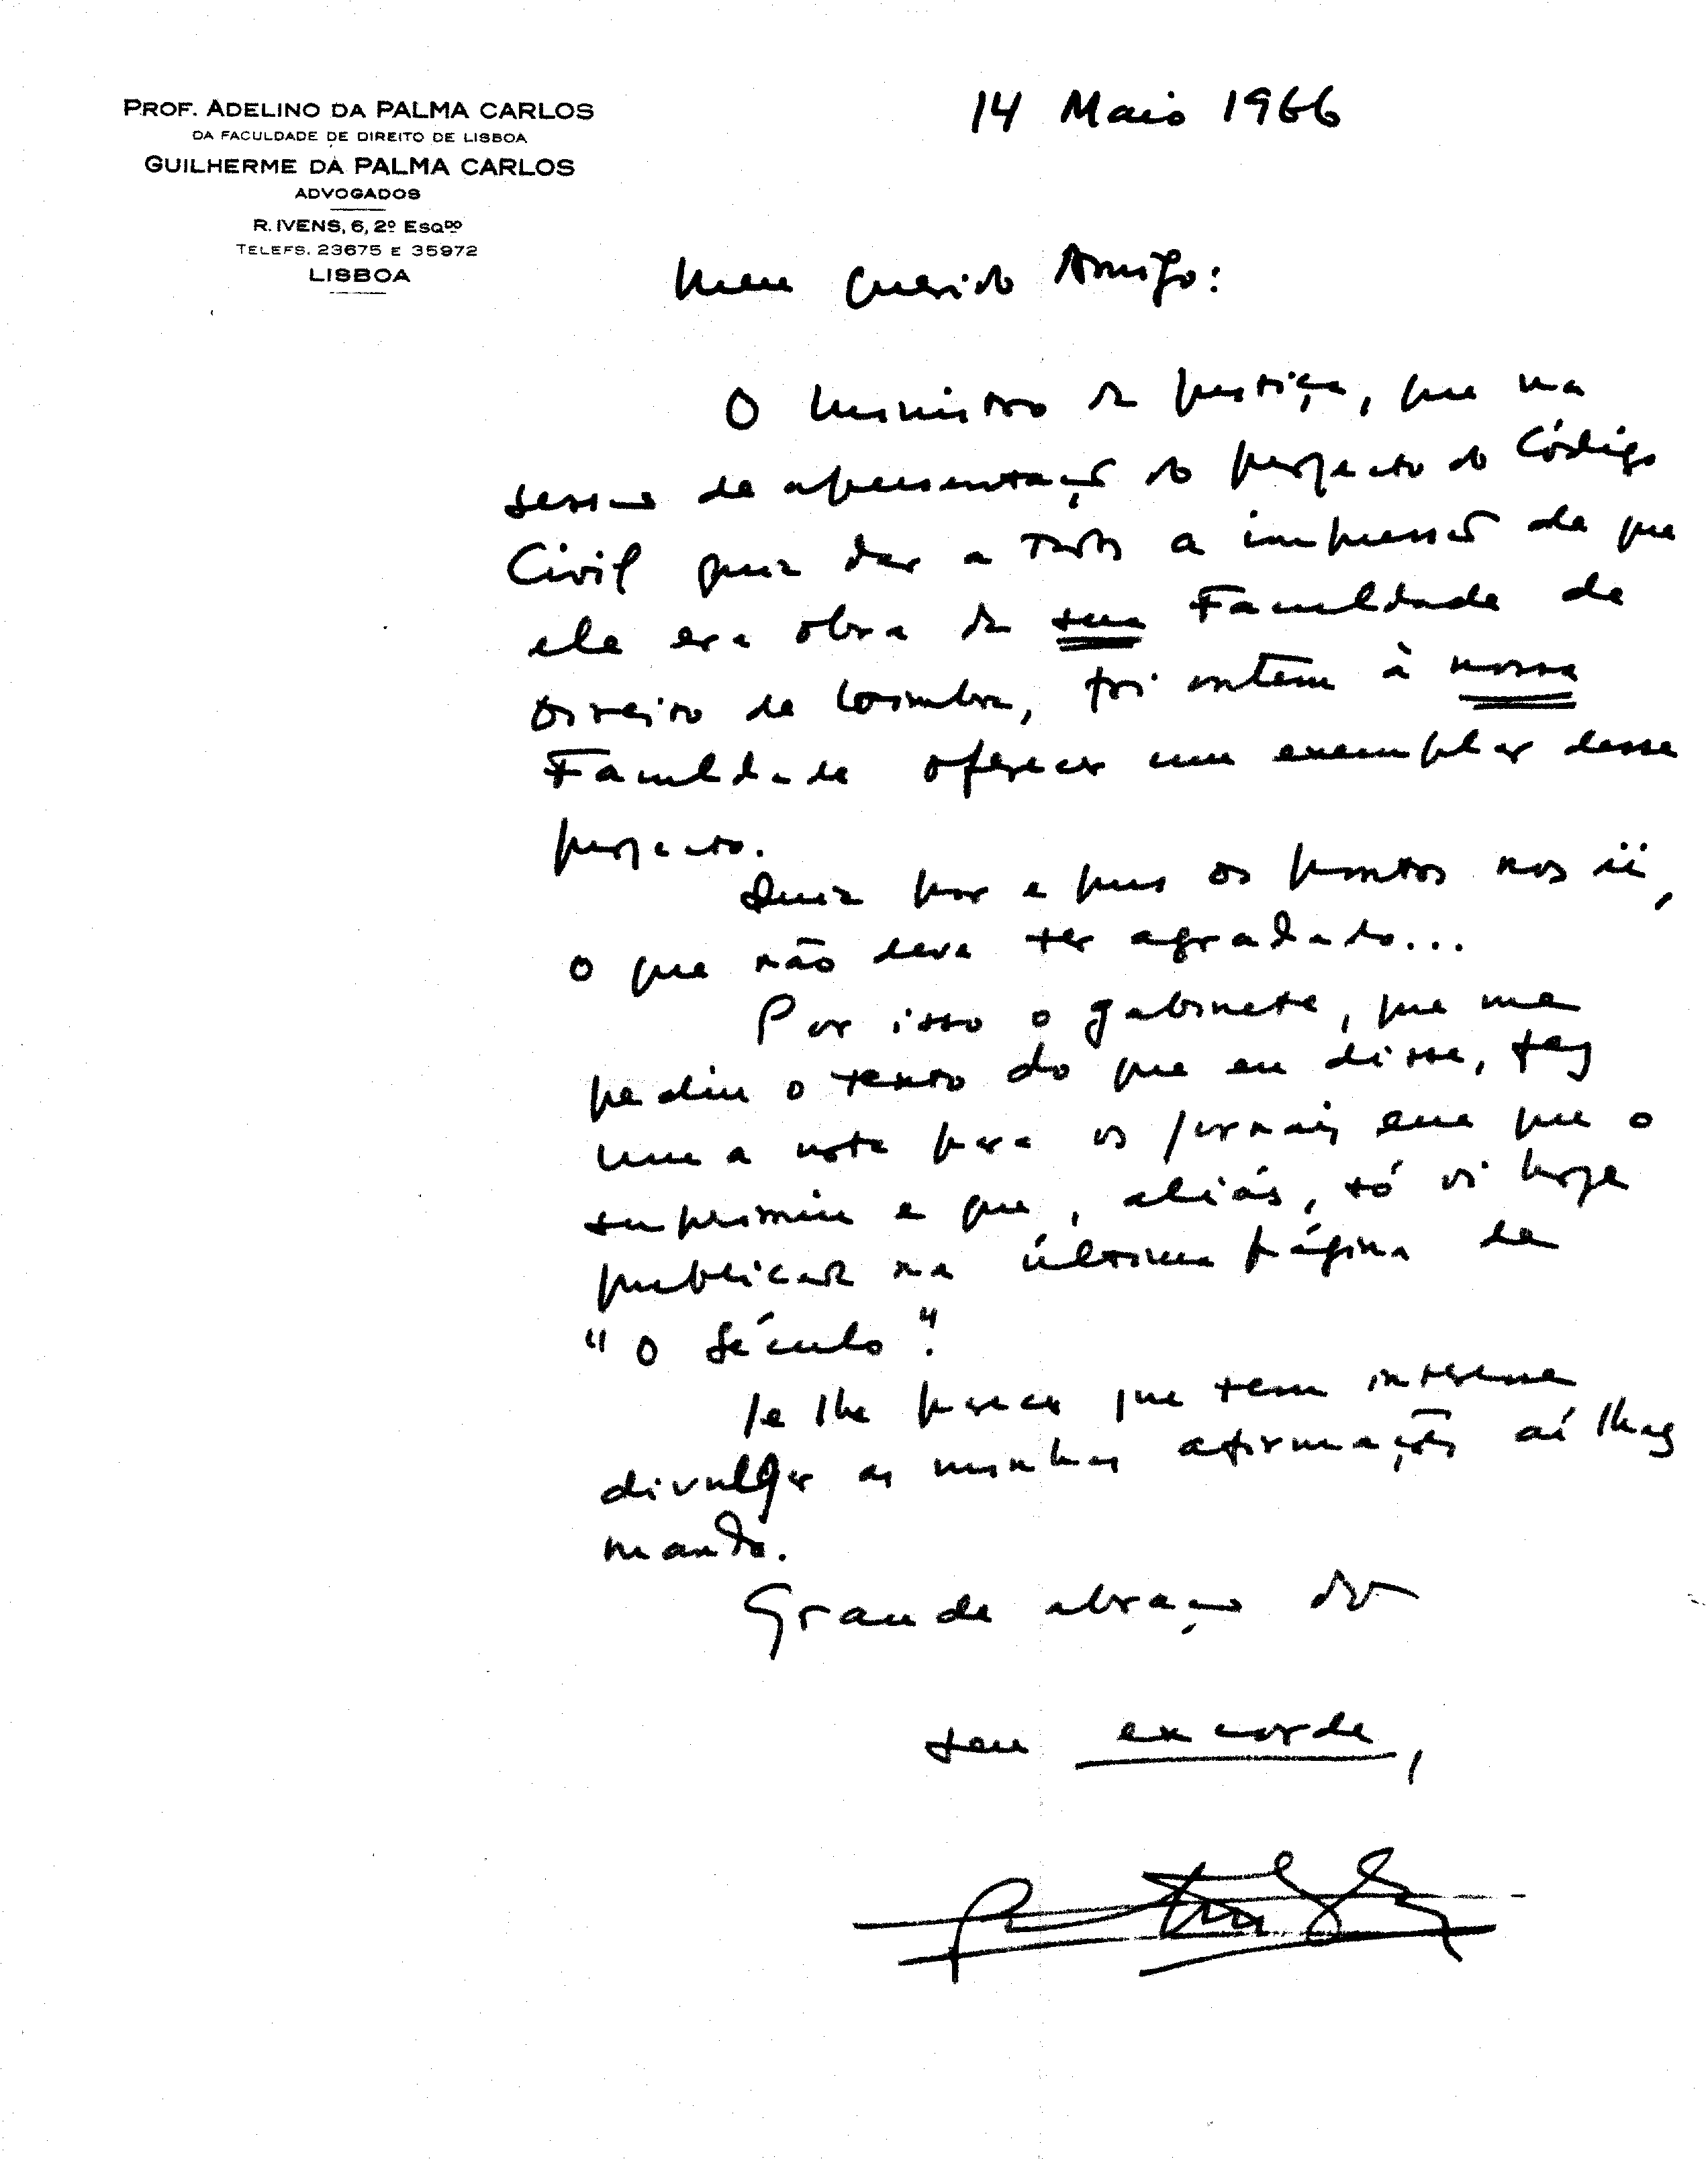 PROF. ADELINO DA PALMA CARLOS
DA FACULDADE DE DIREITO DE LISBOA
GUILHERME DA PALMA CARLOS
ADVOGADOS
R. IVENS, 6, 2º ESQDO
TELEFS. 23675 E 35972
LISBOA
14 Maio 1966
Meu querido Amigo:
O Ministro da Justiça, que na
sessão de apresentação do projecto do Código
Civil quiz dar a todos a impressão de que
ele era obra da sua Faculdade de
Direito de Coimbra, foi ontem à nossa
Faculdade oferecer um exemplar desse
projecto.
Quiz por e pus os pontos nos ii,
o que não deve ter agradado...
Por isso o gabinete, que me
pediu o texto do que eu disse, fez
uma nota para os jornais em que o
suprimiu e que, aliás, só vi hoje
publicada na última página de
"O Século".
Se lhe parecer que tem interesse
divulgar as minhas afirmações aí lhas
mando.
Grande abraço do
seu ex corde,